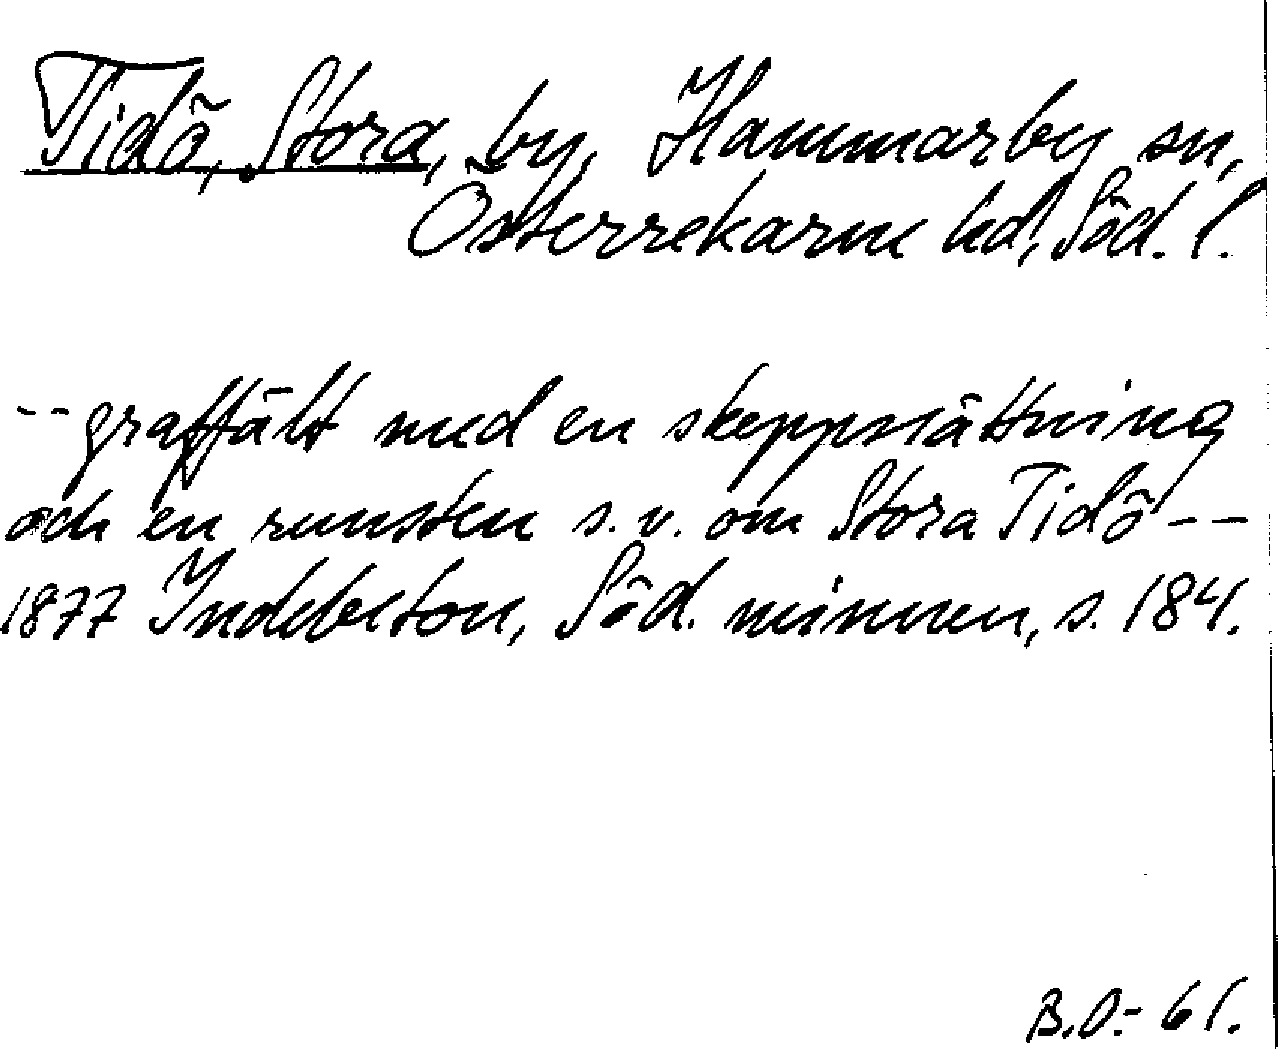 Tidö, Stora, by, Hammarby sn,
Österrekarne hd, Söd. l.
-- graffält med en skeppssättning
och en runsten s.v. om Stora Tidö --
1877 Indebetou, Söd. minnen, s. 184.
B.O:- 61.